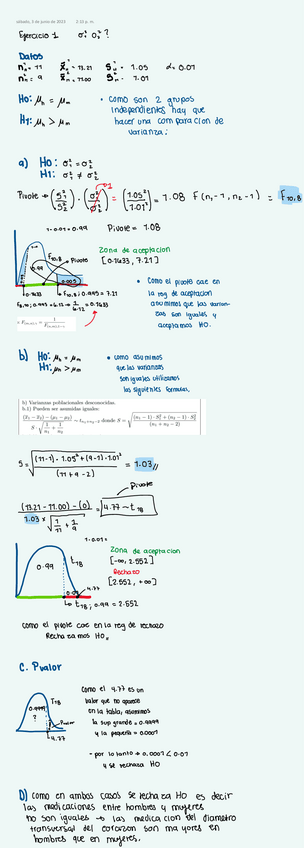 sábado, 3 de junio de 2023 5:13 p. m.
Ejercicio 1 σ₁² σ₂² ?
Datos
n = 11 x̄ = 13.21 S = 1.05 α = 0.01
n = 9 x̄ = 11.00 S = 1.01
H0: μh = μm
H1: μh > μm
• como son 2 grupos
independientes hay que
hacer una comparacion de
varianza:
a) H0: σ₁² = σ₂²
H1: σ₁² ≠ σ₂²
Pivote → (S₁²/S₂²) · (σ₂²/σ₁²) = (1.05²/1.01²) = 1.08 F(n₁-1, n₂-1) = F10,8
1-0.01=0.99 Pivote = 1.08
Zona de aceptacion
[0.1633, 7.21]
F10,8
Pivote
0.99
0.005
0.1633
F10,8; 0.995 = 7.21
F8,10; 0.995 = 6.12 → 1/6.12 = 0.1633
• Como el pivote cae en
la reg de aceptacion
asumimos que las varian-
zas son iguales y
aceptamos H0.
b) H0: μh = μm
H1: μh > μm
• como asumimos
que las varianzas
son iguales utilizamos
las siguientes formulas.
b) Varianzas poblacionales desconocidas.
b.1) Pueden ser asumidas iguales:
((x̄₁ − x̄₂) − (μ₁ − μ₂)) / (S · √(1/n₁ + 1/n₂)) ∼ tn₁+n₂−2 donde S = √(((n₁ − 1) · S₁² + (n₂ − 1) · S₂²) / (n₁ + n₂ − 2))
S = √(((11-1) · 1.05² + (9-1) · 1.01²) / (11 + 9 - 2)) = 1.03
Pivote
((13.21 - 11.00) - (0)) / (1.03 × √(1/11 + 1/9)) = 4.77 ~ t18
1-0.01=
Zona de aceptacion
[-∞, 2.552]
Rechazo
[2.552, +∞]
0.99
t18
0.01
4.77
t18; 0.99 = 2.552
como el pivote cae en la reg de rechazo
Rechazamos H0.
C. Pvalor
T18
0.9999
?
Pvalor
4.77
como el 4.77 es un
valor que no aparece
en la tabla, asumimos
la sup grande = 0.9999
y la pequeña = 0.0001
- por lo tanto → 0.0001 < 0.01
y se rechaza H0
D) como en ambos casos se rechaza H0 es decir
las medicaciones entre hombres y mujeres
no son iguales → las medicacion del diametro
transversal del corazon son mayores en
hombres que en mujeres.